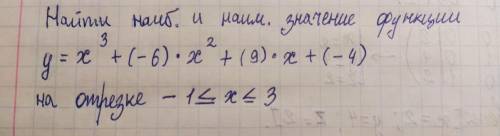 Найти наиб. и наим. значение функции
y = x³ + (-6) · x² + (9) · x + (-4)
на отрезке - 1 ≤ x ≤ 3